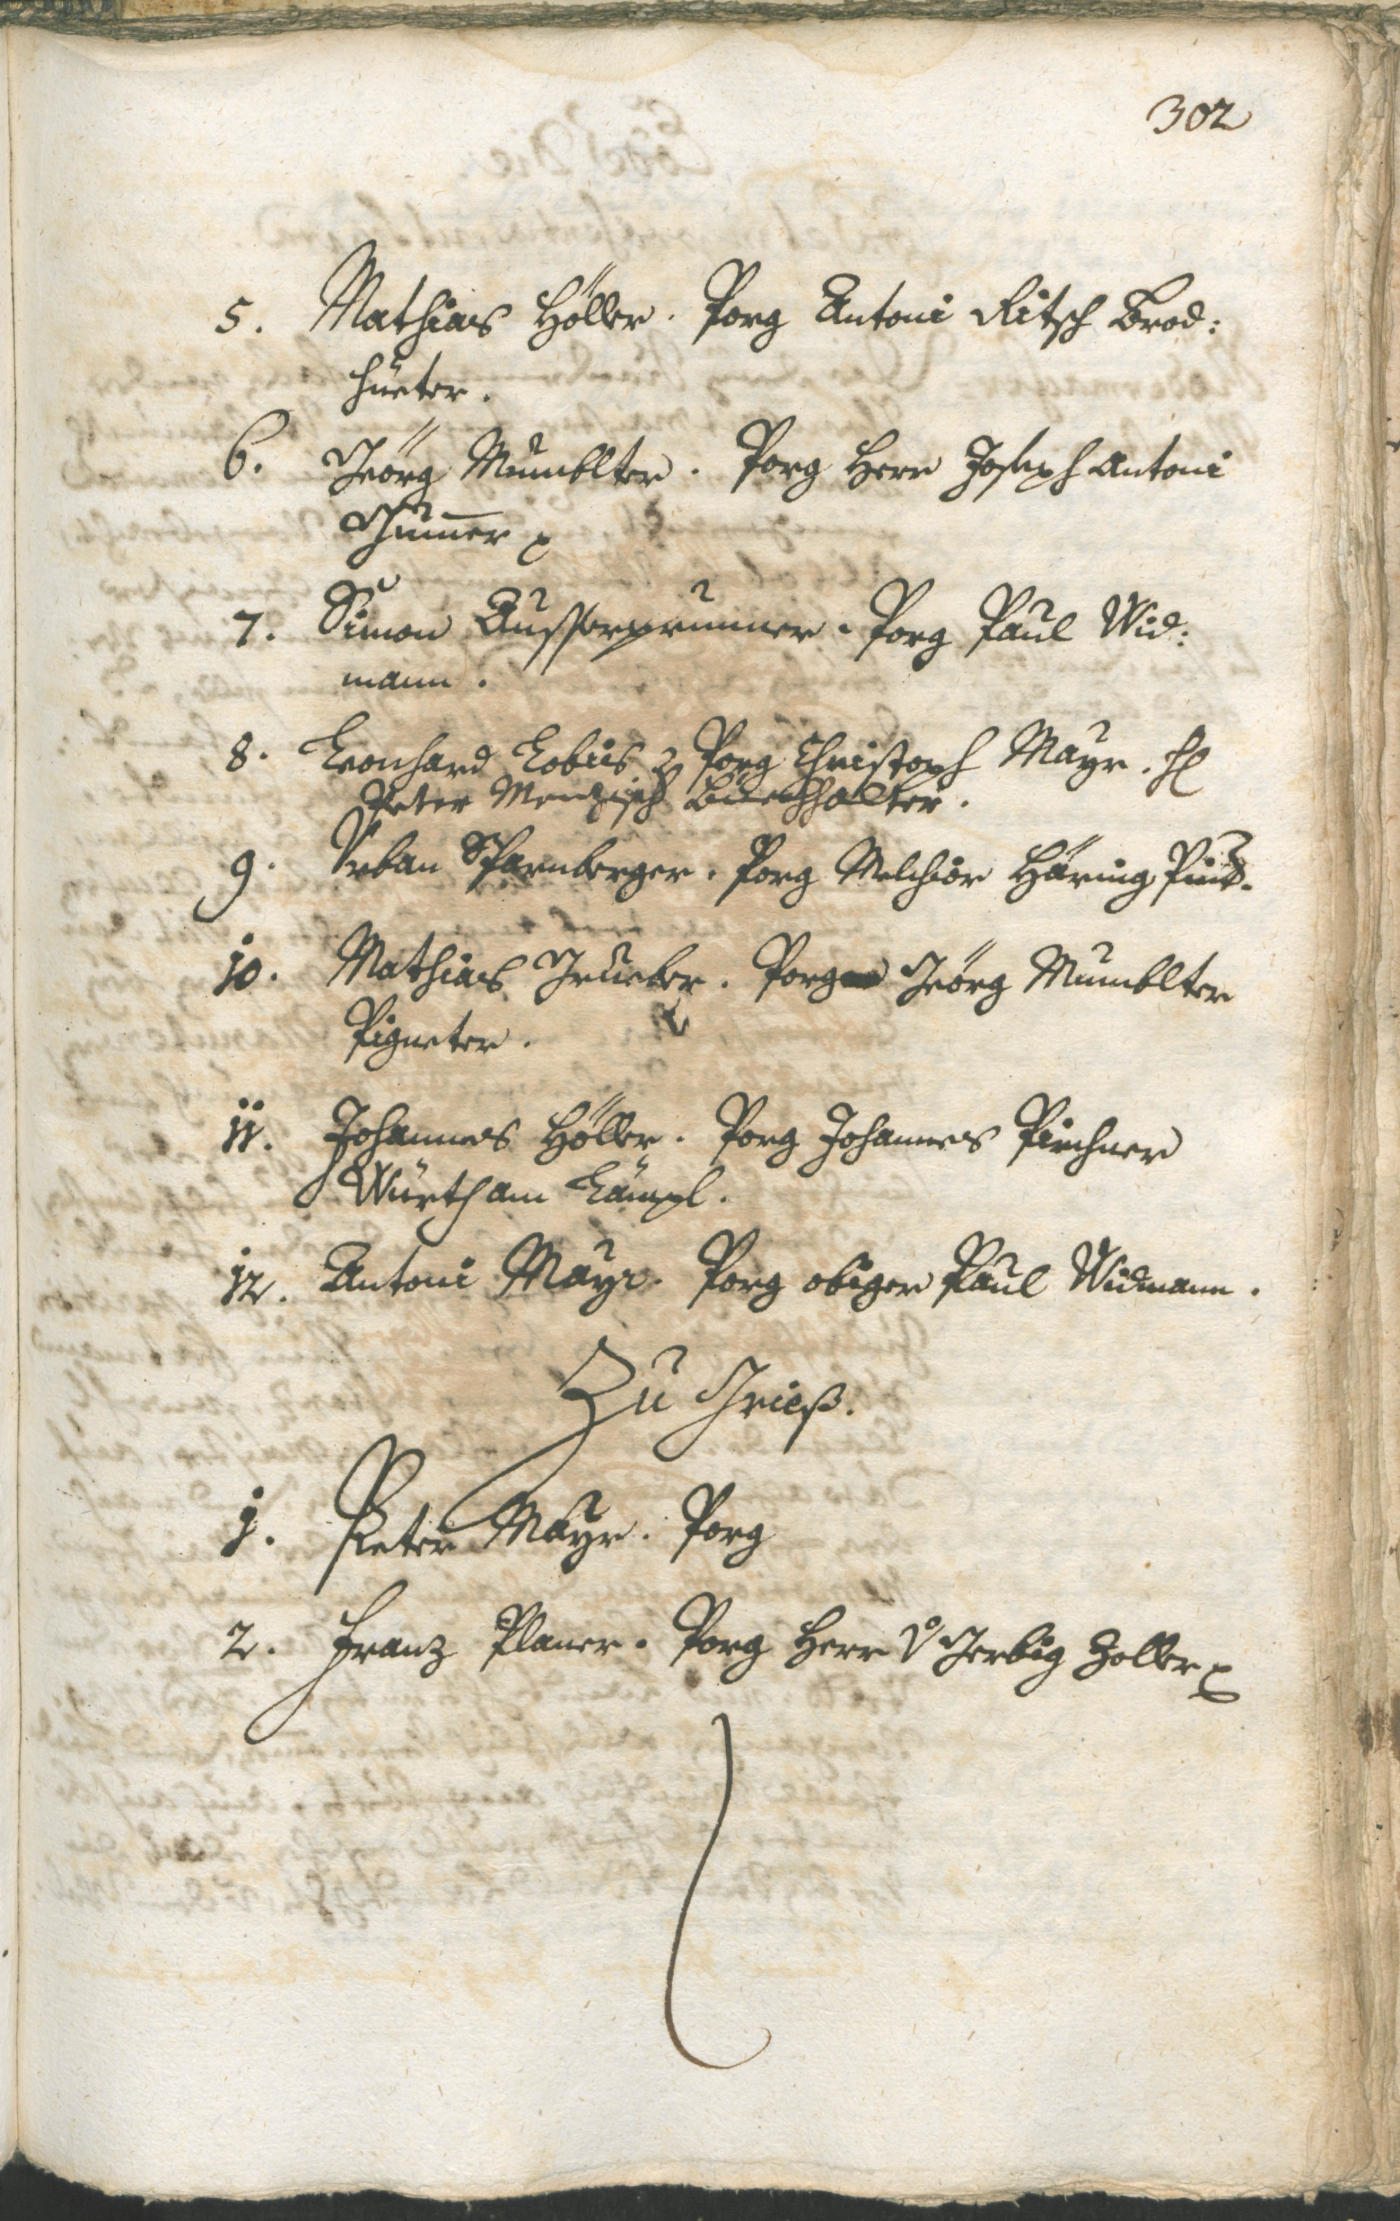 302
5. Mathias Höller. Porg Antoni Ritsch Brod:
hüeter.
6. Geörg Mumblter. Porg Herr Joseph Antoni
Thuner
7. Simon Ausserprunner. Porg Paul Wid:
mann.
8. Leonhard Lobis Porg Christoph Mayr.
Peter Menz
9. Urban Scharnberger. Porg Melchior Häring
10. Mathias Grueber. Porg Geörg Mumblter
Pigneter.
11. Johannes Höller. Porg Johannes Pirchner
Würth am Lämpl.
12. Antoni Mayr. Porg obiger Paul Widmann.
Zu Grieß.
1. Peter Mayr. Porg
2. Franz Planer. Porg Herr Zoller